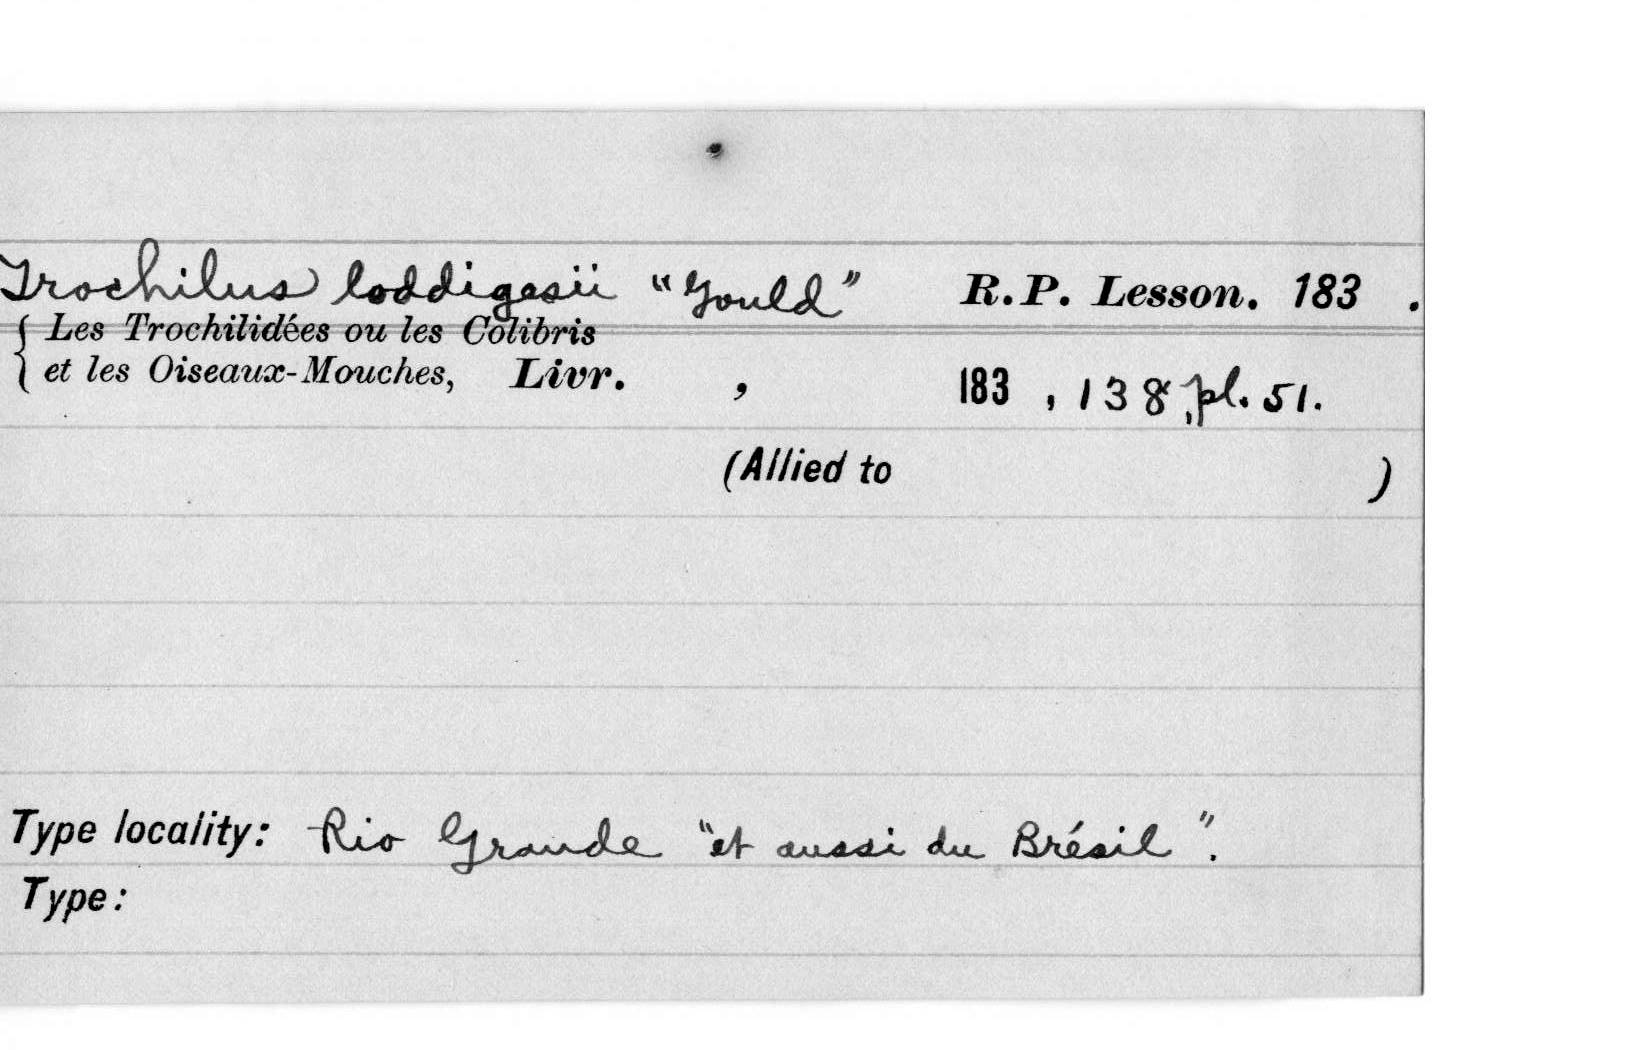 Trochilus loddigesii "Gould" R.P. Lesson. 183 .
{ Les Trochilidées ou les Colibris
et les Oiseaux-Mouches, Livr. , 183 , 138, pl. 51.
(Allied to )
Type locality: Rio Grande "et aussi du Brésil".
Type: